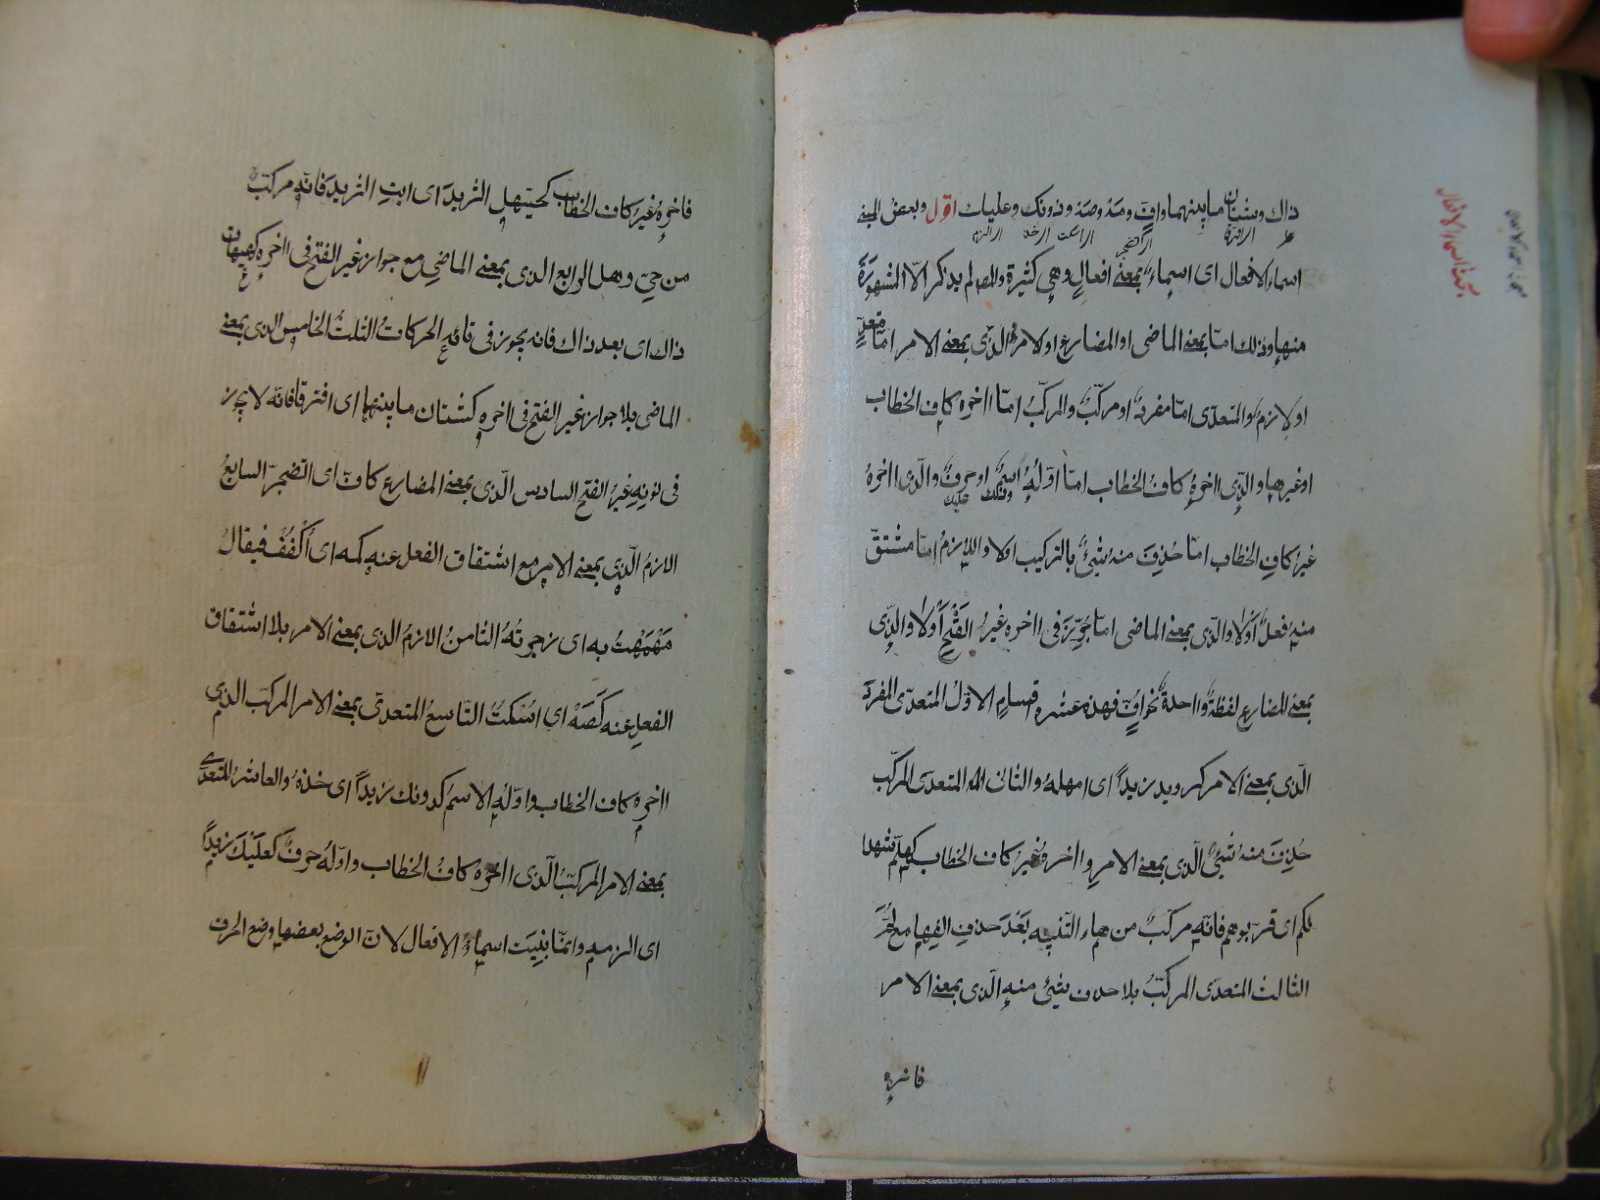 ذاك وشتان ما بينهما واف ومه وصه ودونك وعليك اقول وبعض المبنى
اسماء الافعال اى اسماء بمعنى افعال وهى كثيرة والمص لم يذكر الا المشهورة
منها وذلك اما بمعنى الماضى او المضارع او الامر والذى بمعنى الامر اما متعد
او لازم والمتعدى اما مفرد او مركب والمركب اما اخره كاف الخطاب
او غيرها والذى اخره كاف الخطاب اما اوله اسم او حرف والذى اخره
غير كاف الخطاب اما حذف منه شئ بالتركيب اولا واللازم اما مشتق
منه فعل اولا والذى بمعنى الماضى اما جوز فى اخره غير الفتح اولا والذى
بمعنى المضارع لفظة واحدة نحو اف فهذه عشرة اقسام الاول المتعدى المفرد
الذى بمعنى الامر كرويد زيدا اى امهله والثانى المتعدى المركب
حذف منه شئ الذى بمعنى الامر واخره غير كاف الخطاب كهلم شهدا
ئكم اى قربوهم فانه مركب من هاء التنبيه بعد حذف الفها مع لم
الثالث المتعدى المركب بلا حذف شئ منه الذى بمعنى الامر
فاخره
بحث اسماء الافعال
فاخره غير كاف الخطاب كحيهل الثريد اى ايت الثريد فانه مركب
من حى وهل الرابع الذى بمعنى الماضى مع جواز غير الفتح فى اخره كهيهات
ذاك اى بعد ذاك فانه يجوز فى تائه الحركات الثلث الخامس الذى بمعنى
الماضى بلا جواز غير الفتح فى اخره كشتان ما بينهما اى افترقا فانه لا يجوز
فى نونه غير الفتح السادس الذى بمعنى المضارع كاف اى اتضجر السابع
اللازم الذى بمعنى الامر مع اشتقاق الفعل عنه كمه اى اكفف فيقال
مهمهت به اى زجرته الثامن اللازم الذى بمعنى الامر بلا اشتقاق
الفعل عنه كصه اى اسكت التاسع المتعدى بمعنى الامر المركب الذى
اخره كاف الخطاب واوله الاسم كدونك زيدا اى خذه والعاشر المتعدى
بمعنى الامر المركب الذى اخره كاف الخطاب واوله حرف كعليك زيدا
اى الزمه وانما بنيت اسماء الافعال لان الوضع بعضها وضع الحرف